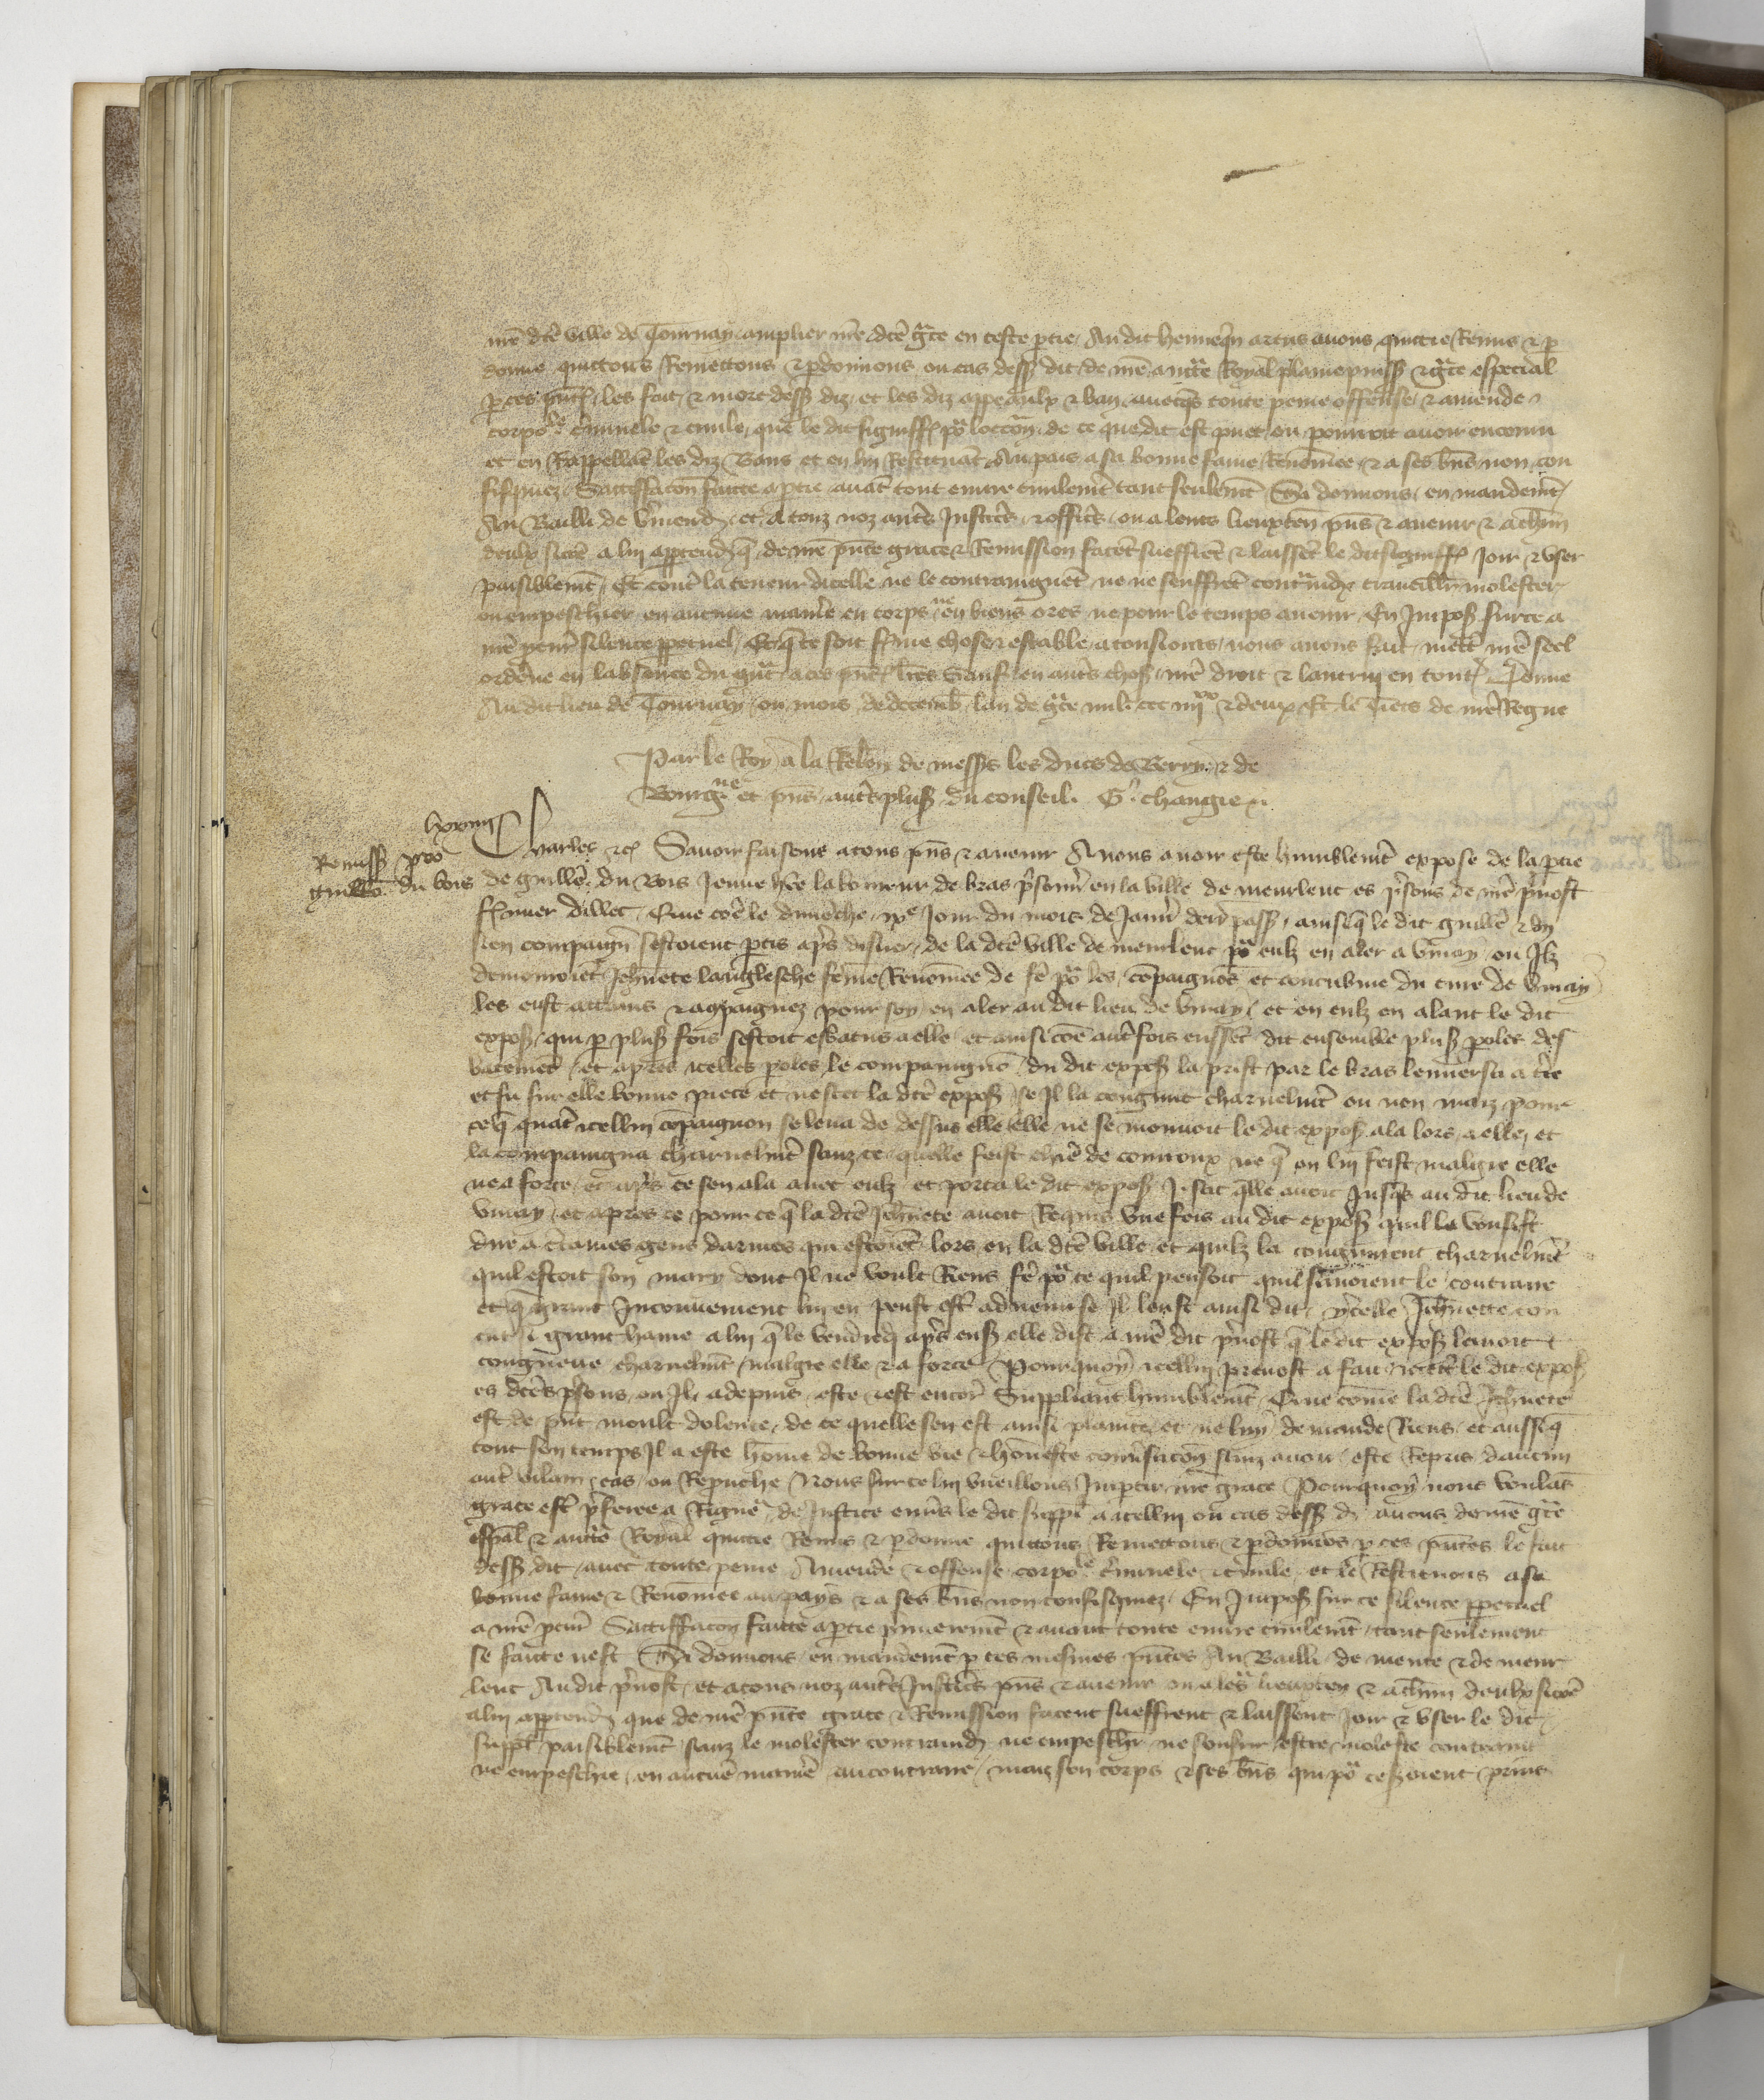 nrē dcē ville de Tournay amplier nrē dcē gr̄ce en ceste ptie Audit hennequin artus auons quictie Remis & p
donne quittons Remettons & pdonnons ou cas dessus dit de nrē auctē Royal plaine puiss & gr̄ce especial
p ces pn̄tes les fait & mort dessus diz et les diz appeaulx & ban auecqs toute peine offense & amende
corpole c̄minele & ciuile que le dit signiff po loccōn de ce que dit est puet ou pourroit auoir encouru
et en Rappellāt les diz Bans et en lui Restituāt Au pais a sa bonne fame Renōmee & a ses bn̄s non con
fisquez Sattiffacōn faicte a ptie auāt tout euure ciuilemēt tant seulemēt Si donnons en mandemēt
Au Bailli de v̄mend et a touz noz autrs Justicrs & officrs ou a leurs lieuxten pn̄s & auenir & a chūn
deulx sicōe a lui appartendra que de nrē pn̄te grace & Remission facēt sueffrēt & laissēt le dit signiff Joir & vser
paisiblemēt Et contre la teneur dicelle ne le contraingnēt ne ne seuffrēt contraindre trauaillr molester
ou empeschier en aucune manr̄e en corps ne en biens ores ne pour le temps auenir En Imposāt surce a
nrē procur silence ppetuel Et q̄ ce soit ferme chose & estable a tousiours nous auons fait mettr̄ nrē seel
ordene en labsence du grāt a ces pn̄tes lrēs Sauf en autrs choses nrē droit & lautruy en toutes Donne
Audit lieu de Tournay ou mois de decemb lan de gr̄ce mil ccc iiijxx & deux Et le Tiers de nrē Regne
Par le Roy a la Relōn de messrs les ducs de Berry & de
Bourgne et pn̄s autrs plus du conseil G. changiex
Remiss pro
guillō du bois
Charles &c Sauoir faisons a tous pn̄s & auenir A nous auoir este humblemēt expose de la ptie
de guillē du Bois Jeune hōe laboureur de bras prisonnr̄ en la ville de meurlent es prisons de nrē preuost
fermier dillec Que cōe le dimenche ixe Jour du mois de Januir derr passe ainsi q̄ le dit guillē & un
sien compaignon sestoient ptis aprs disner de la dcē ville de meurlent po eulz en aler a Vmay ou Ilz
demouroiēt Jehn̄ete langlesche fēme Renōmee de fr̄e po les compaignōs et concubine du cure de Vmay
les eust attrais & acpaignez pour soy en aler audit lieu de Vmay et en eulz en alant le dit
exposāt qui p plus fois sestoit esbatus a elle et ainsi cōe autrfois eussēt dit ensemble plus poles des
batemēt et apres icelles poles le compaignō du dit exposāt la prist par le bras lenuersa a trē
et fu sur elle bonne piece et ne scet la dcē exposāt se Il la congnut charnelmēt ou non maiz pour
ce q̄ quāt icellui cōpaignon se leua de dessus elle elle ne se mouuoit le dit exposāt ala lors a elle et
la compaigna charnelmēt sanz ce quelle feist chiē de courroux ne q̄ on lui feist malgre elle
ne a force et aprs ce sen ala auec eulz et porta le dit exposāt J. sac quelle auoit Jusques au dit lieu de
Vmay et apres ce pour ce q̄ la dcē Jehn̄ete auoit Requis vne fois au dit exposāt quil le voulsist
dire a c̄taines gens darmes qui estoiēt lors en la dcē ville et quilz la congnurent charnelmēt
quil estoit son mary dont Il ne voult Riens fr̄e po ce quil pensoit quil scauoient le contraire
et q̄ grant Inconuenient lui en peust estr̄ aduenu se Il leust ainsi dit ycelle Jehn̄ette con
cut si grant haine a lui q̄ le vendredi aprs ens elle dist a nrē dit preuost q̄ le dit exposāt lauoit
congneue charnelmt malgre elle & a force Pourquoy icellui preuost a fait mettre le dit exposāt
es dcēs prisons ou Il a depuis este & est encor Suppliant humblemēt Que cōme la dcē Jehn̄ete
est de pn̄t moult dolente de ce quelle sen est ainsi plainte et ne lui demande Riens et aussi q̄
tout son temps Il a este hōme de bonne vie & honneste conuersacōn sanz auoir este Repris daucun
autr̄ vilain cas ou Reprouche Nous sur ce lui vueillons Impartir nrē grace Pourquoy nous voulās
grace estr̄ preferee a Rigueur de Justice enuers le dit suppl a icellui ou cas dess d. auons de nrē gr̄ce
espāl & auctē Royal quictie Remis & pdonne quittons Remettons & pdonnōs p ces pn̄tes le fait
dess dit auec toute peine Amende & offense corpole c̄minele & ciuile et le Restituons a sa
bonne fame & Renōmee au pays & a ses bn̄s non confisquez En Imposāt sur ce silence ppetuel
a nrē procur Sattiffacōn faitte a ptie p̄mieremēt & auant toute euure ciuilemēt tant seulement
se faicte nest Si donnons en mandemēt p ces mesmes pn̄tes Au Bailli de mante & de meur
lent Au dit preuost et a tous noz autrs Justicrs pn̄s & auenir ou a lers lieuxten & a chūn deulx sicōe
a lui appartendra que de nrē pn̄te grace & Remission facent sueffrent & laissent Joir & vser le dit
suppl paisiblemēt sanz le molester contraindre ne empeschier ne souffrir estre moleste contraint
ne empeschie en aucune manr̄e au contraire maiz son corps & ses bn̄s qui po ce seroient prins